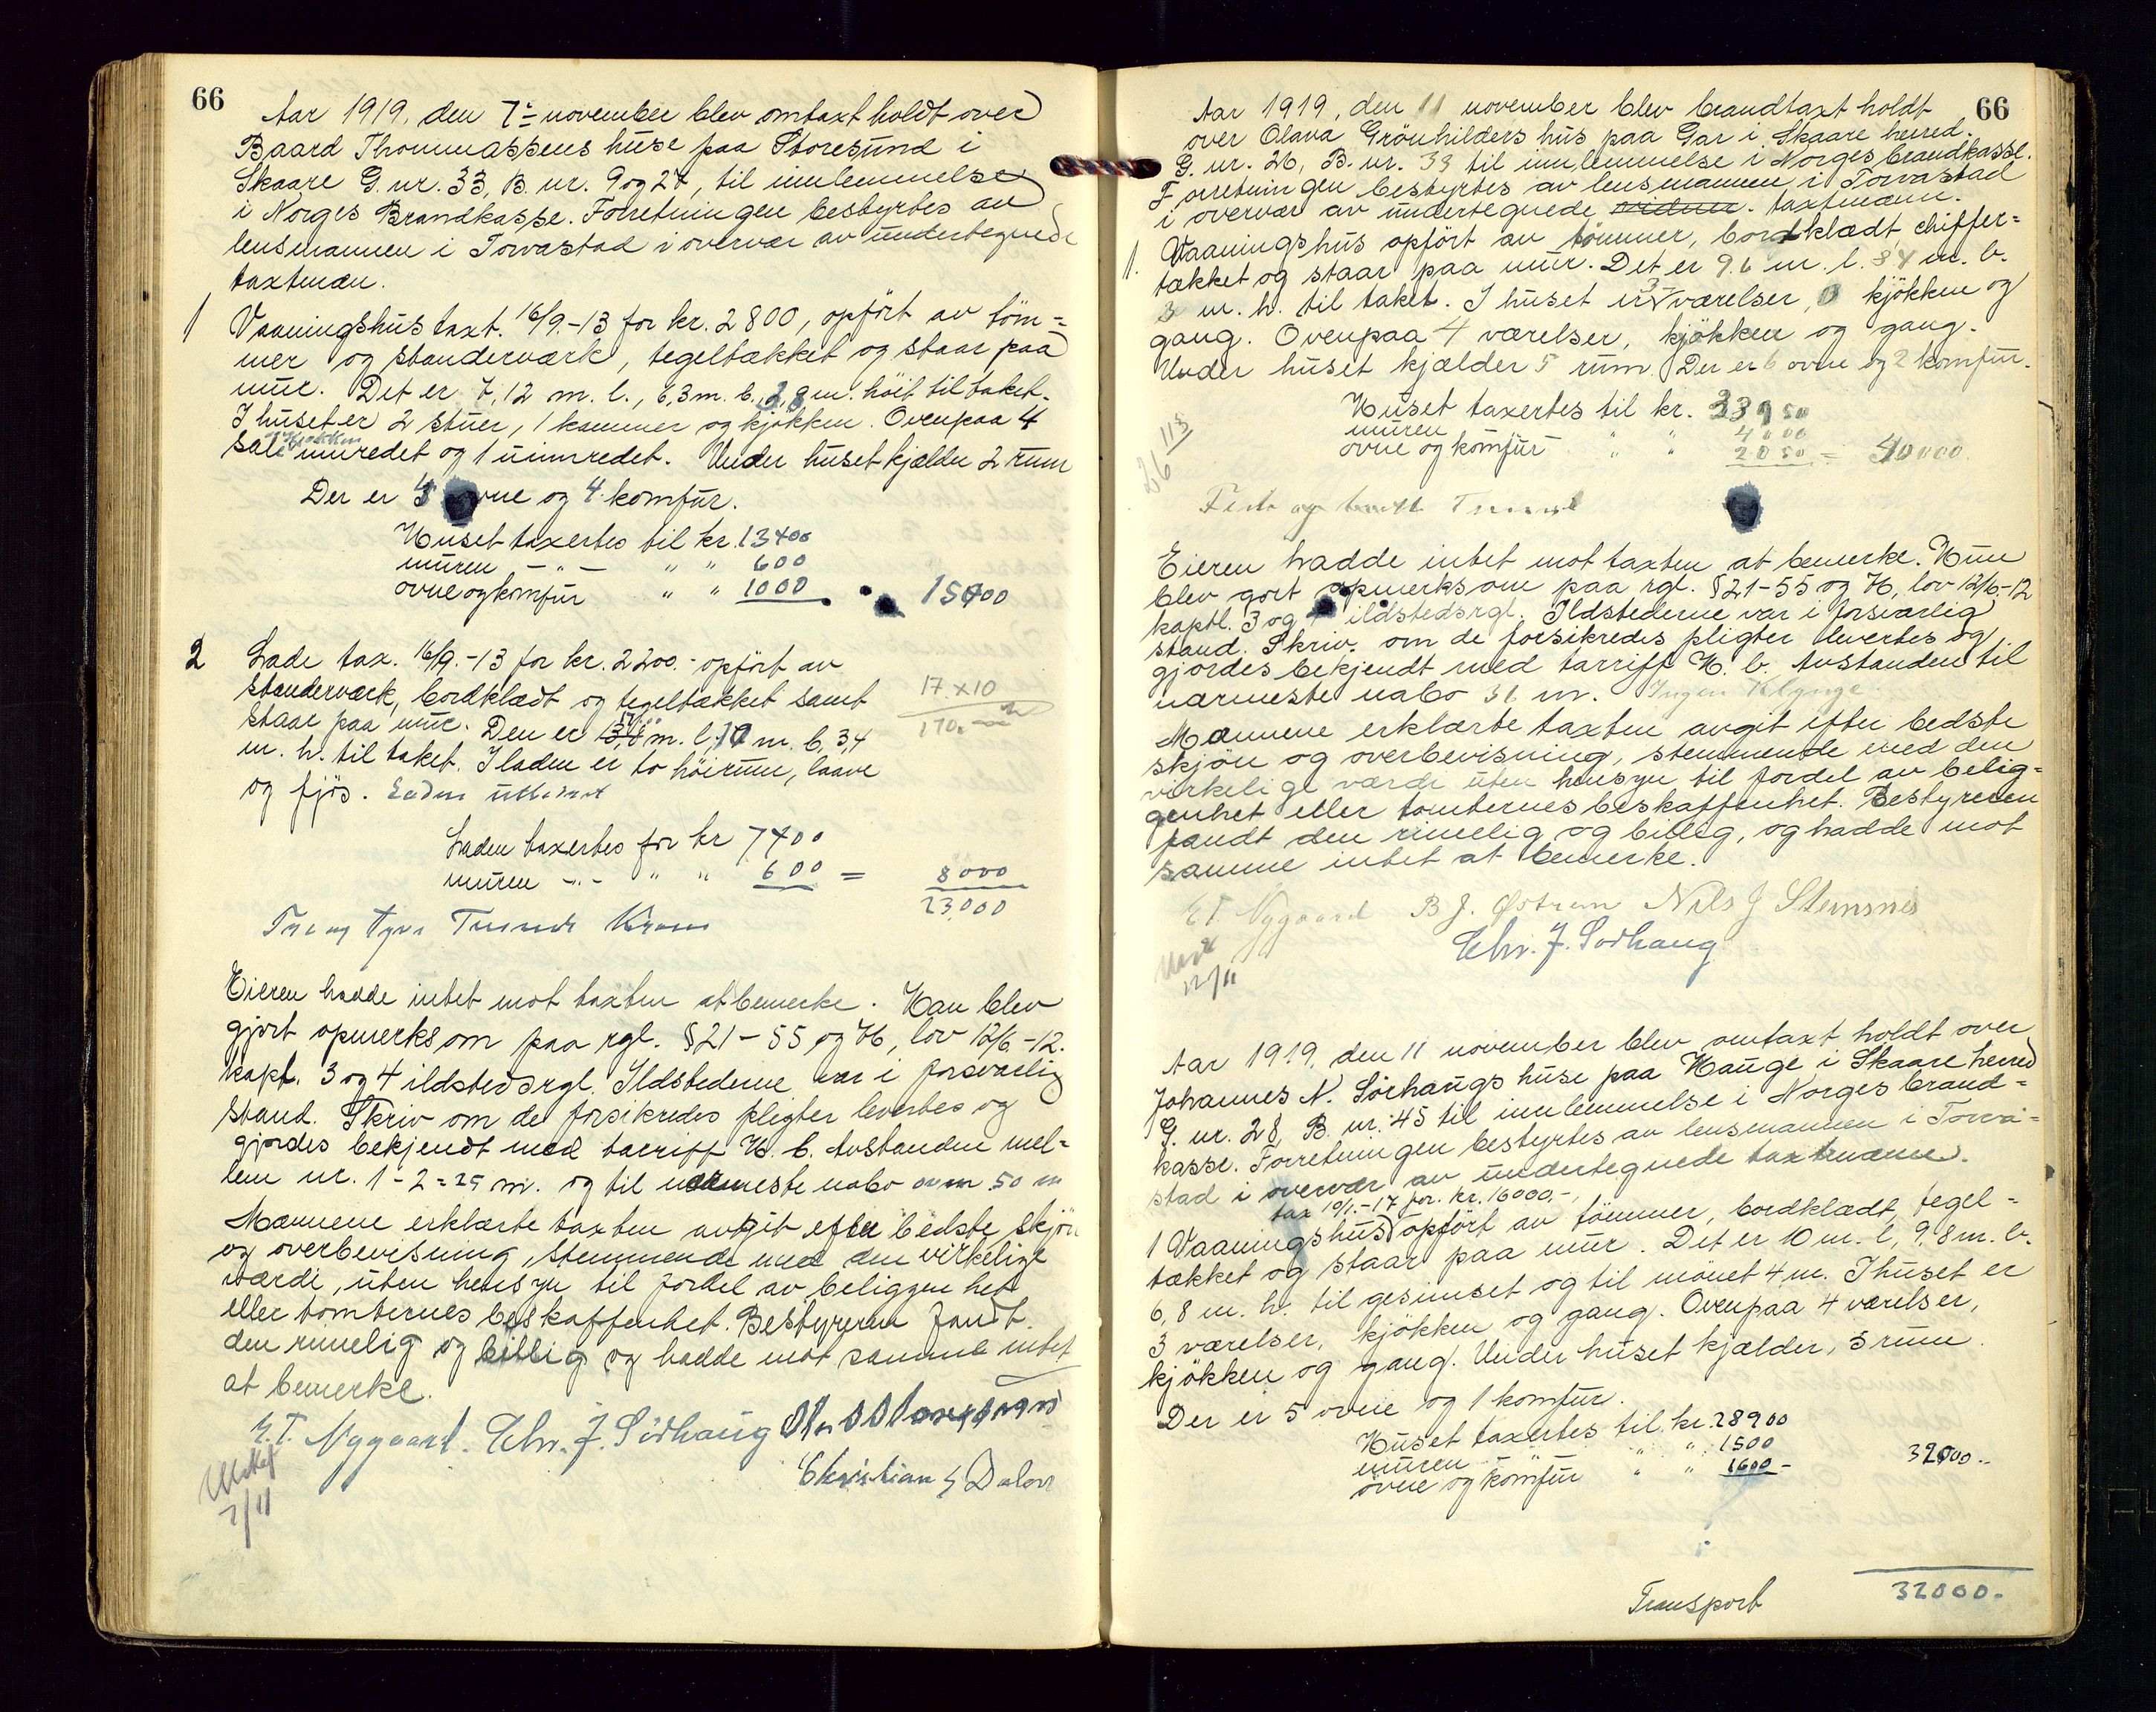 66
Aar 1919, den 7de november blev omtaxt holdt over
Baard Thommassens huse paa Storesund i
Skaare G. nr. 33, B. nr. 9 og 27, til innlemmelse
i Norges Brandkasse. Forretningen bestyrtes av
lensmannen i Torvastad i overvær av undertegnede
taxtmæn.
1 Vaaningshus taxt. 16/9.-13 for kr. 2800, opført av töm=
mer og standerværk, tegeltækket og staar paa
mur. Det er 7,12 m. l., 6,3 m. b., 2,8 m. höit til taket.
I huset er 2 stuer, 1 kammer og kjøkken. Ovenpaa 4
sale og kjøkken innredet og 1 uinnredet. Under huset kjælder 2 rum
Der er ovne og 4 komfur.
Huset taxertes til kr. 13400
muren -"- " " 600
ovne og komfur " " 1000 15000
2 Lade tax. 16/9.-13 for kr. 2200.- opført av
standerværk, bordklædt og tegeltækket samt
staar paa mur. Den er 17 m. l., 10 m. b., 3,4
m. h. til taket. I laden er to höirum, laave
og fjös. Laden utbedret
17 x 10
170. m²
Laden taxertes for kr 7400
muren -"- " " 600 = 8000
23,000
Tre og tyve Tusinde Kroner
Eieren hadde intet mot taxten at bemerke. Han blev
gjort opmerksom paa rgl. § 21-55 og 76, lov 12/6.-12.
kapt. 3 og 4 ildstedsrgl. Ildstederne var i forsvarlig
stand. Skriv om de forsikredes pligter levertes og
gjordes bekjendt med tarriff H. b. Avstanden mel=
lem nr. 1-2 = 25 m. og til nærmeste nabo over 50 m
Mænnene erklærte taxten avgit efter bedste skjön
og overbevisning, stemmende med den virkelige
værdi, uten hensyn til fordel av beliggenhet
eller tomternes beskaffenhet. Bestyreren fandt
den rimelig og billig og hadde mot samme intet
at bemerke.
E. T. Nygaard. Chr. J. Sörhaug
Christian S Dalen
7/11
66
Aar 1919, den 11 november blev brandtaxt holdt
over Olava Grönhilders hus paa Gar i Skaare herred.
G. nr. 26, B. nr. 33 til innlemmelse i Norges brandkasse.
Forretningen bestyrtes av lensmannen i Torvastad
i overvær av undertegnede vidner. taxtmænn.
1. Vaaningshus opfört av tömmer, bordklædt, chiffer=
tækket og staar paa mur. Det er 9.6 m. l. 8 4 m. b.
3 m. h. til taket. I huset er 3 værelser, kjökken og
gang. Ovenpaa 4 værelser, kjökken og gang.
Under huset kjælder 5 rum. Der er 6 ovne og 2 komfur.
Huset taxertes til kr. 33950
muren 4000
ovne og komfur " " 2050 = 40000
26 113
Eieren hadde intet mot taxten at bemerke. Hun
blev gort opmerksom paa rgl. § 21-55 og 76, lov 12/6.-12
kaptl. 3 og 4 ildstedsrgl. Ildstederne var i forsvarlig
stand. Skriv. om de forsikredes pligter levertes og
gjordes bekjendt med tarriff H. b. Avstanden til
nærmeste nabo 31 m. Ingen Klynge.
Mænnene erklærte taxten avgit efter bedste
skjön og overbevisning, stemmende med den
virkelige værdi uten hensyn til fordel av belig=
genhet eller tomternes beskaffenhet. Bestyreren
fandt den rimelig og billig, og hadde mot
samme intet at bemerke.
E. T. Nygaard B J. Østrem Nils J Stensnes
Chr. J. Sörhaug
12/11
Aar 1919, den 11 november blev omtaxt holdt over
Johannes N. Sörhaugs huse paa Hauge i Skaare herred
G. nr. 28, B. nr. 45 til innlemmelse i Norges brand=
kasse. Forretningen bestyrtes av lensmannen i Torva=
stad i overvær av undertegnede taxtmænn.
tax 10/1.-17 for. kr. 16000.-
1 Vaaningshus opfört av tömmer, bordklædt, tegel=
tækket og staar paa mur. Det er 10 m. l, 9.8 m. b.
6,8 m. h. til gesimset og til mönet 4 m. I huset er
3 værelser, kjökken og gang. Ovenpaa 4 værelser,
kjökken og gang. Under huset kjælder, 5 rum.
Der er 5 ovne og 1 komfur.
Huset taxertes til kr. 28900
muren -"- " " 1500
ovne og komfur " " 1600 - 32000.-
Transport 32000.-